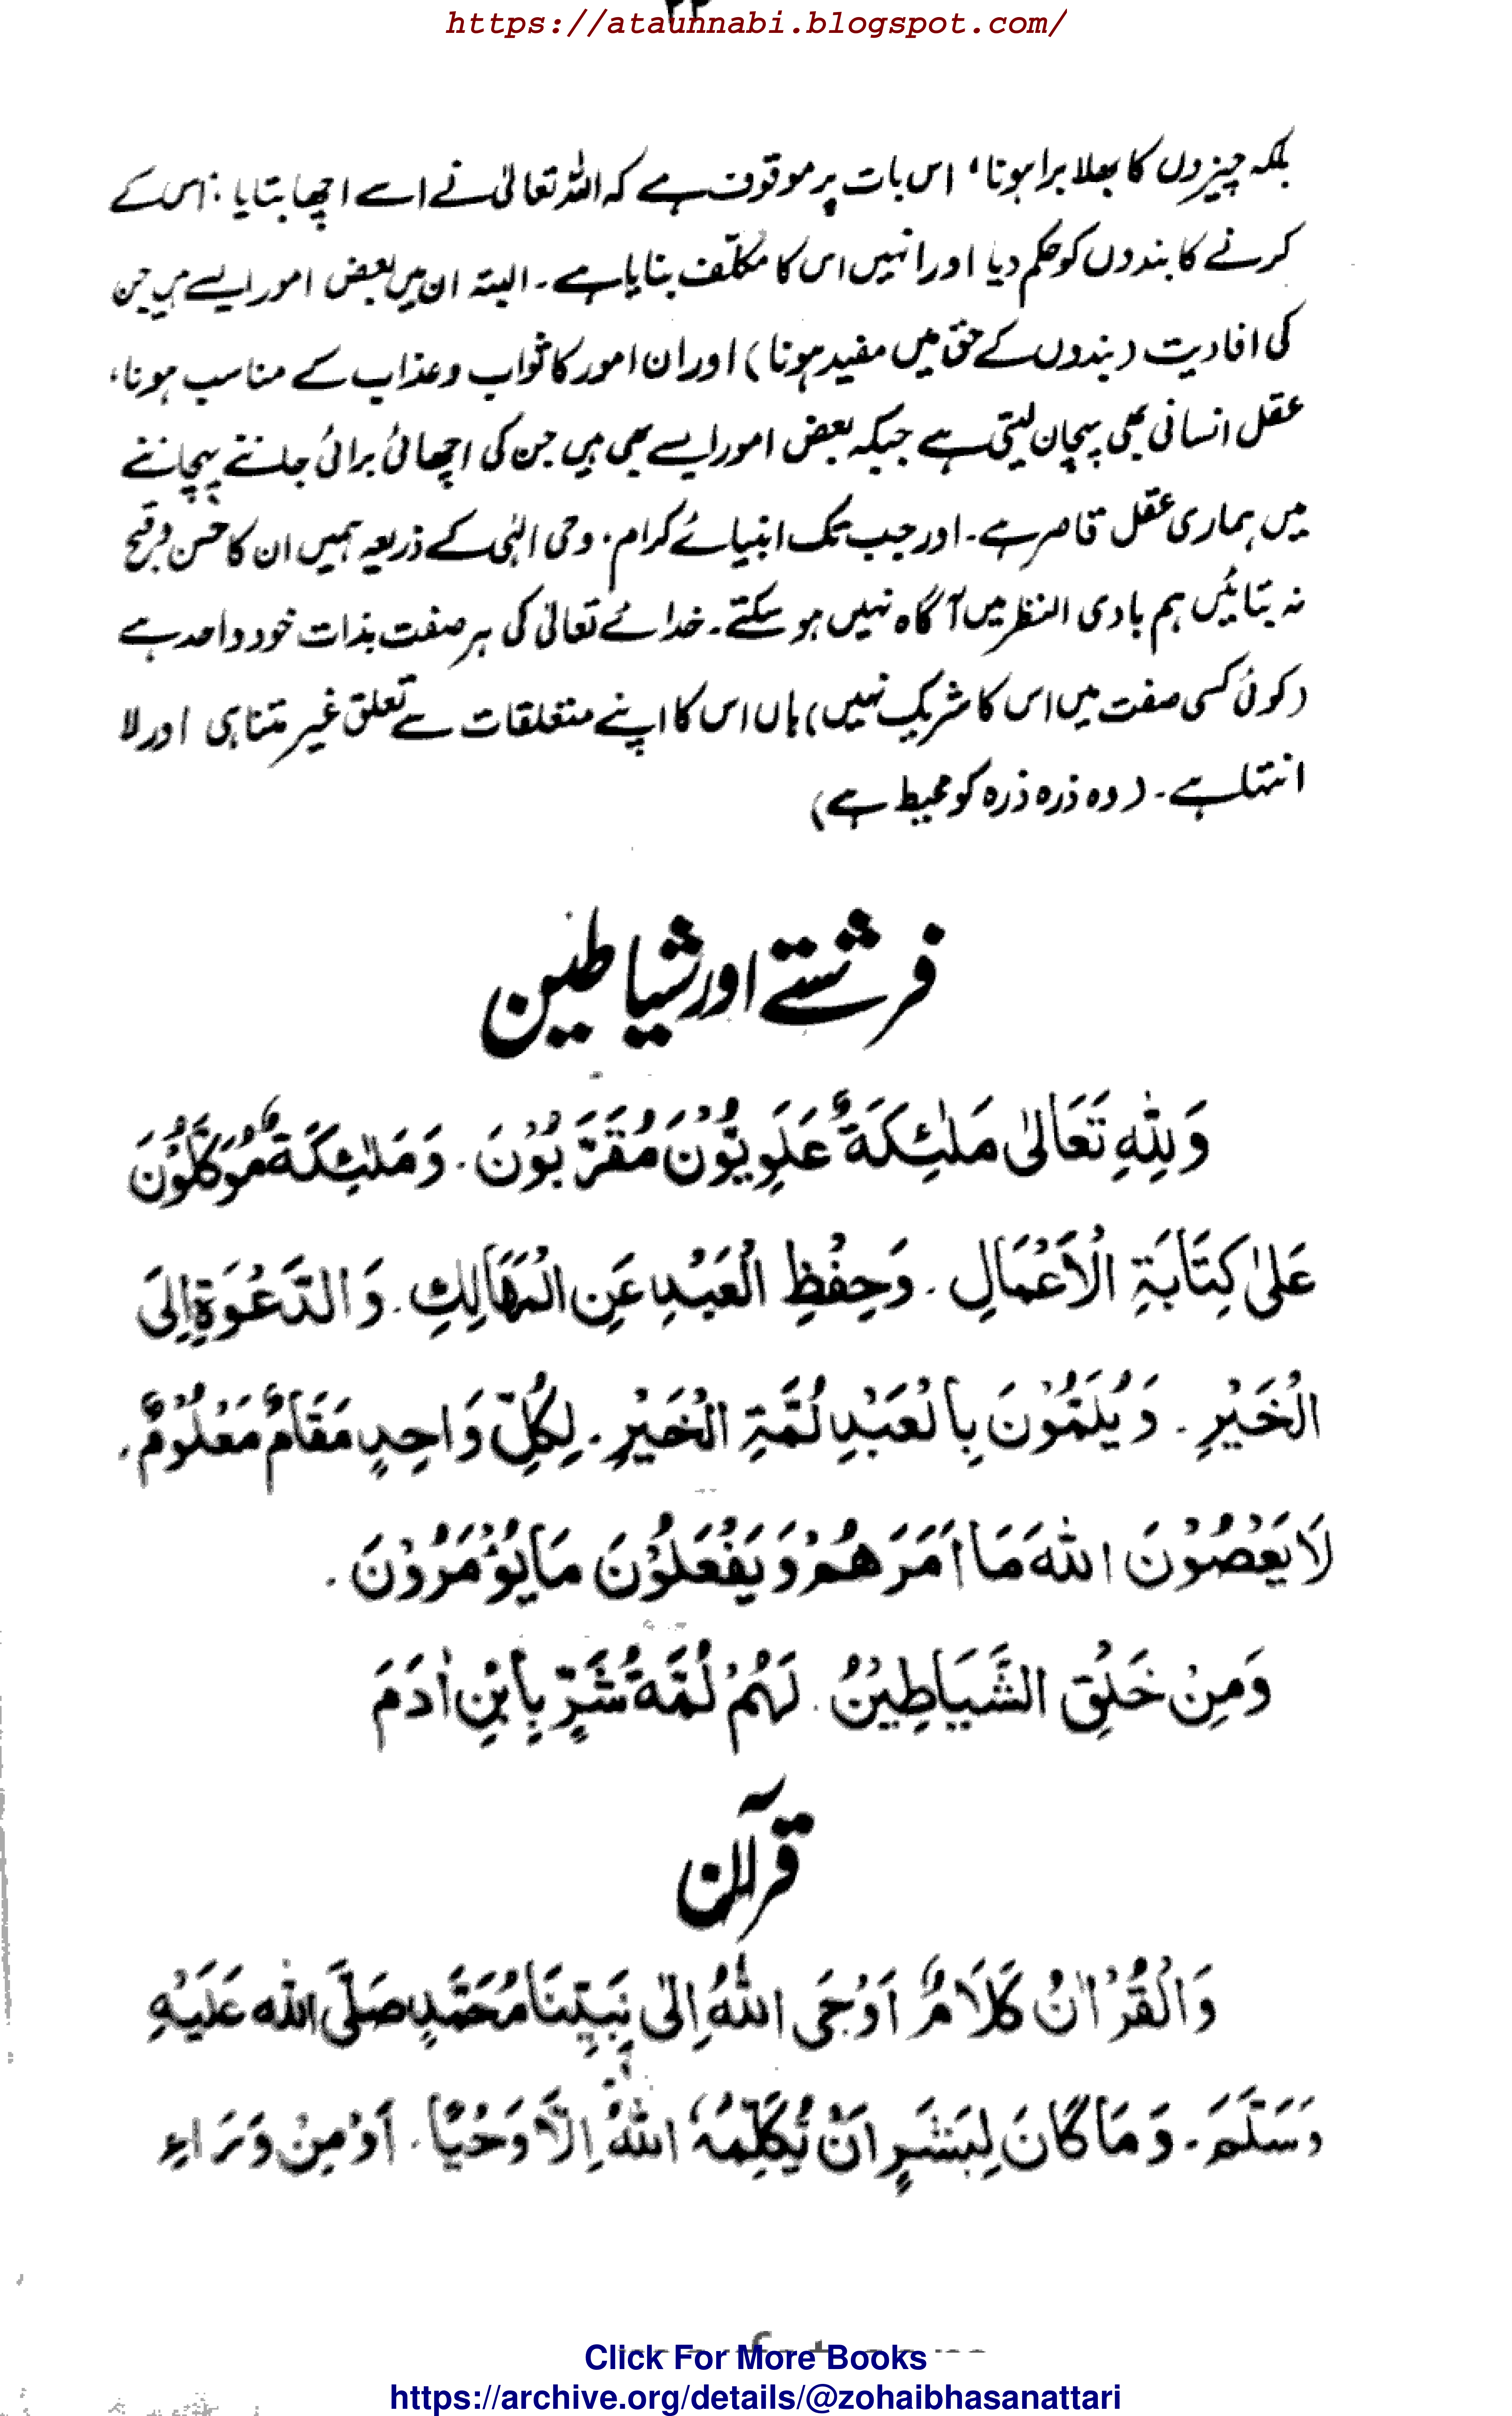 https://ataunnabi.blogspot.com/
بلکہ چیزوں کا بھلا برا ہونا، اس بات پر موقوف ہے کہ اللہ تعالیٰ نے اسے اچھا بتایا، اس کے
کرنے کا بندوں کو حکم دیا اور انہیں اس کا مکلّف بنایا ہے۔ البتہ ان میں بعض امور ایسے ہیں جن
کی افادیت (بندوں کے حق میں مفید ہونا) اور ان امور کا ثواب و عذاب کے مناسب ہونا،
عقل انسانی بھی پہچان لیتی ہے جبکہ بعض امور ایسے بھی ہیں جن کی اچھائی برائی جاننے پہچاننے
میں ہماری عقل قاصر ہے۔ اور جب تک انبیائے کرام، وحی الٰہی کے ذریعہ ہمیں ان کا حسن و قبح
نہ بتائیں ہم بادی النظر میں آگاہ نہیں ہو سکتے۔ خدائے تعالیٰ کی ہر صفت بذات خود واحد ہے
(کوئی کسی صفت میں اس کا شریک نہیں) ہاں اس کا اپنے متعلقات سے تعلق غیر متناہی اور لا
انتہا ہے۔ (وہ ذرہ ذرہ کو محیط ہے)
فرشتے اور شیاطین
وَلِلّٰهِ تَعَالٰى مَلٰئِكَةٌ عَلَوِيُّوْنَ مُقَرَّبُوْنَ۔ وَمَلٰئِكَةٌ مُوَكَّلُوْنَ
عَلٰى كِتَابَةِ الْاَعْمَالِ۔ وَحِفْظِ الْعَبْدِ عَنِ الْمَهَالِكِ۔ وَالدَّعْوَةِ اِلَى
الْخَيْرِ۔ وَيُلِمُّوْنَ بِالْعَبْدِ لُمَّةَ الْخَيْرِ۔ لِكُلِّ وَاحِدٍ مَقَامٌ مَعْلُوْمٌ۔
لَا يَعْصُوْنَ اللهَ مَا اَمَرَهُمْ وَيَفْعَلُوْنَ مَا يُؤْمَرُوْنَ۔
وَمِنْ خَلْقِ الشَّيَاطِيْنُ۔ لَهُمْ لُمَّةُ شَرٍّ بِابْنِ اٰدَمَ
قرآن
وَالْقُرْاٰنُ كَلَامٌ اَوْحَى اللهُ اِلٰى نَبِيِّنَا مُحَمَّدٍ صَلَّى الله عَلَيْهِ
وَسَلَّمَ۔ وَمَا كَانَ لِبَشَرٍ اَنْ يُّكَلِّمَهُ اللهُ اِلَّا وَحْيًا۔ اَوْ مِنْ وَرَاءِ
Click For More Books
https://archive.org/details/@zohaibhasanattari